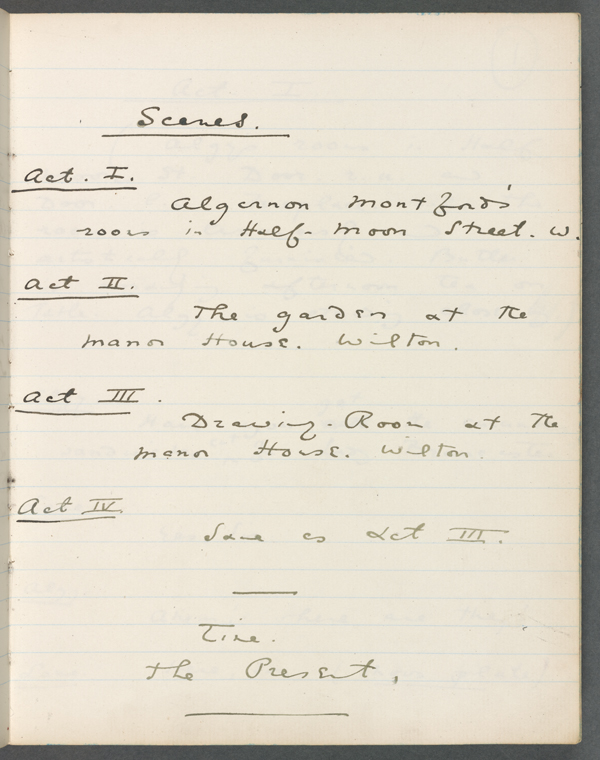 Scenes.
Act. I.
Algernon Montford's
rooms in Half-Moon Street. W.
Act II.
The garden at the
Manor House. Wilton.
Act III.
Drawing-Room at the
Manor House. Wilton.
Act IV.
Same as Act III.
Time.
The Present.